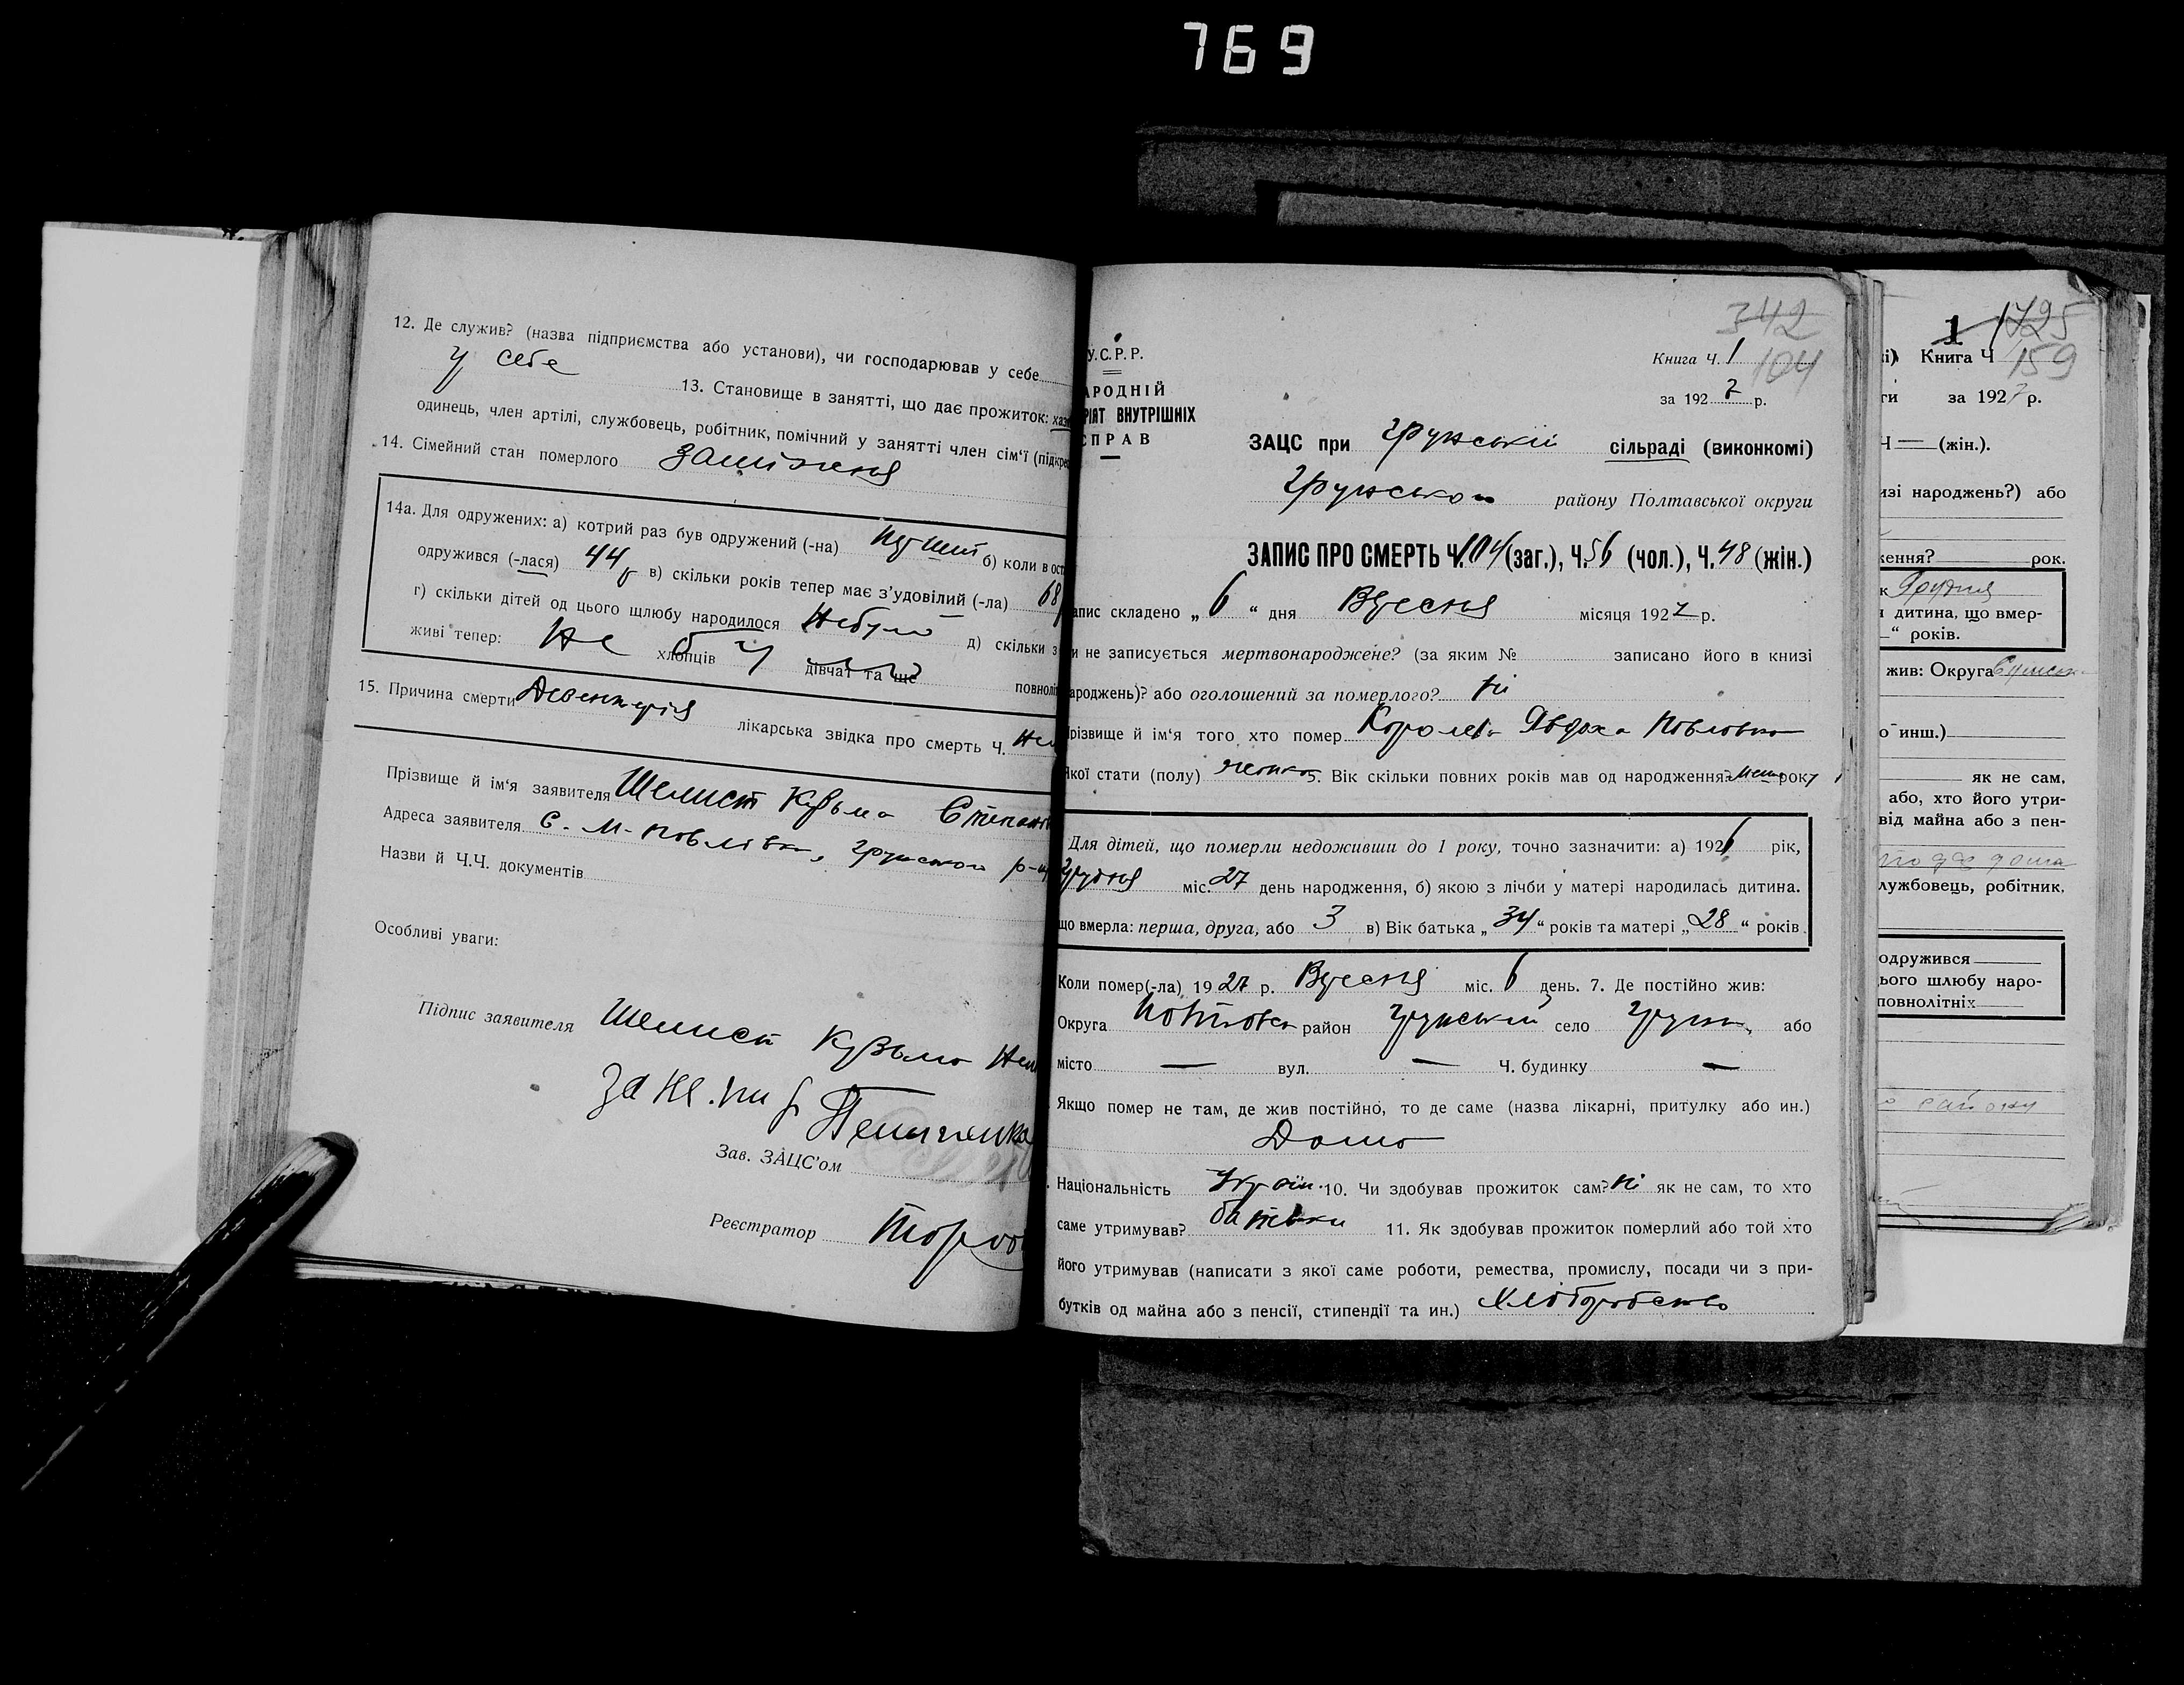 769
12. Де служив? (назва підприємства або установи), чи господарював у себе
у себе 13. Становище в занятті, що дає прожиток: хаз
одинець, член артілі, службовець, робітник, помічний у занятті член сім'ї (підкре
14. Сімейний стан померлого заміжня
14а. Для одружених: а) котрий раз був одружений (-на) б) коли в ост
одружився (-лася) 44 в) скільки років тепер має з'удовілий (-ла) 68
г) скільки дітей од цього шлюбу народилося Небуло д) скільки з
живі тепер: Не хлопців дівчат та ще повноліт
15. Причина смерти Дезентерія лікарська звідка про смерть Ч.
Прізвище й ім'я заявителя Шелист Кузьма
Адреса заявителя С. М-Повлівка, Грунського р-
Назви й Ч.Ч. документів
Особливі уваги:
Підпис заявителя Шелист Кузьма
за не
Зав. ЗАЦС'ом
Реєстратор
У.С.Р.Р.
АРОДНІЙ
РІЯТ ВНУТРІШНІХ
СПРАВ
342
Книга Ч. 1 104
за 1927 р.
ЗАЦС при Грунській сільраді (виконкомі)
Грунського району Полтавської округи
ЗАПИС ПРО СМЕРТЬ Ч. 104 (заг.), Ч. 56 (чол.), Ч. 48 (жін.)
апис складено „ 6 “ дня Вересня місяця 1927 р.
и не записується мертвонароджене? (за яким № записано його в книзі
ароджень)? або оголошений за померлого? ні
різвище й ім'я того хто помер Явдоха Повловна
Якої стати (полу) 5. Вік скільки повних років мав од народження? року
Для дітей, що померли недоживши до 1 року, точно зазначити: а) 1926 рік,
Грудня міс. 27 день народження, б) якою з лічби у матері народилась дитина.
що вмерла: перша, друга, або 3 в) Вік батька „ 34 “ років та матері „ 28 “ років.
Коли помер(-ла) 1927 р. Вересня міс. 6 день. 7. Де постійно жив:
Округа район Грунський село Грунь, або
місто — вул. — Ч. будинку —
Якщо помер не там, де жив постійно, то де саме (назва лікарні, притулку або ин.)
Дома
Національність Україн. 10. Чи здобував прожиток сам? ні як не сам, то хто
саме утримував? батьки 11. Як здобував прожиток померлий або той хто
його утримував (написати з якої саме роботи, ремества, промислу, посади чи з при-
бутків од майна або з пенсії, стипендії та ин.) Хліборобство
1 1725
і) Книга Ч 159
ти за 1927 р.
Ч — (жін.).
изі народжень?) або
ження? рок.
к Грудня
я дитина, що вмер-
—“ років.
жив: Округа
о инш.)
як не сам,
або, хто його утри-
від майна або з пен-
лужбовець, робітник,
одружився
ього шлюбу наро-
повнолітніх
району